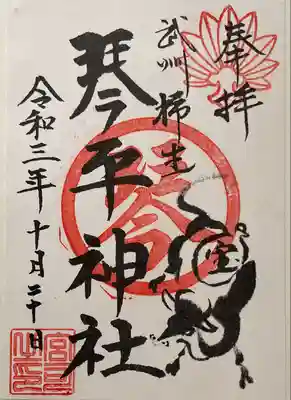 奉拝
武州柿生
琴平神社
令和三年十月二十日
金
宝